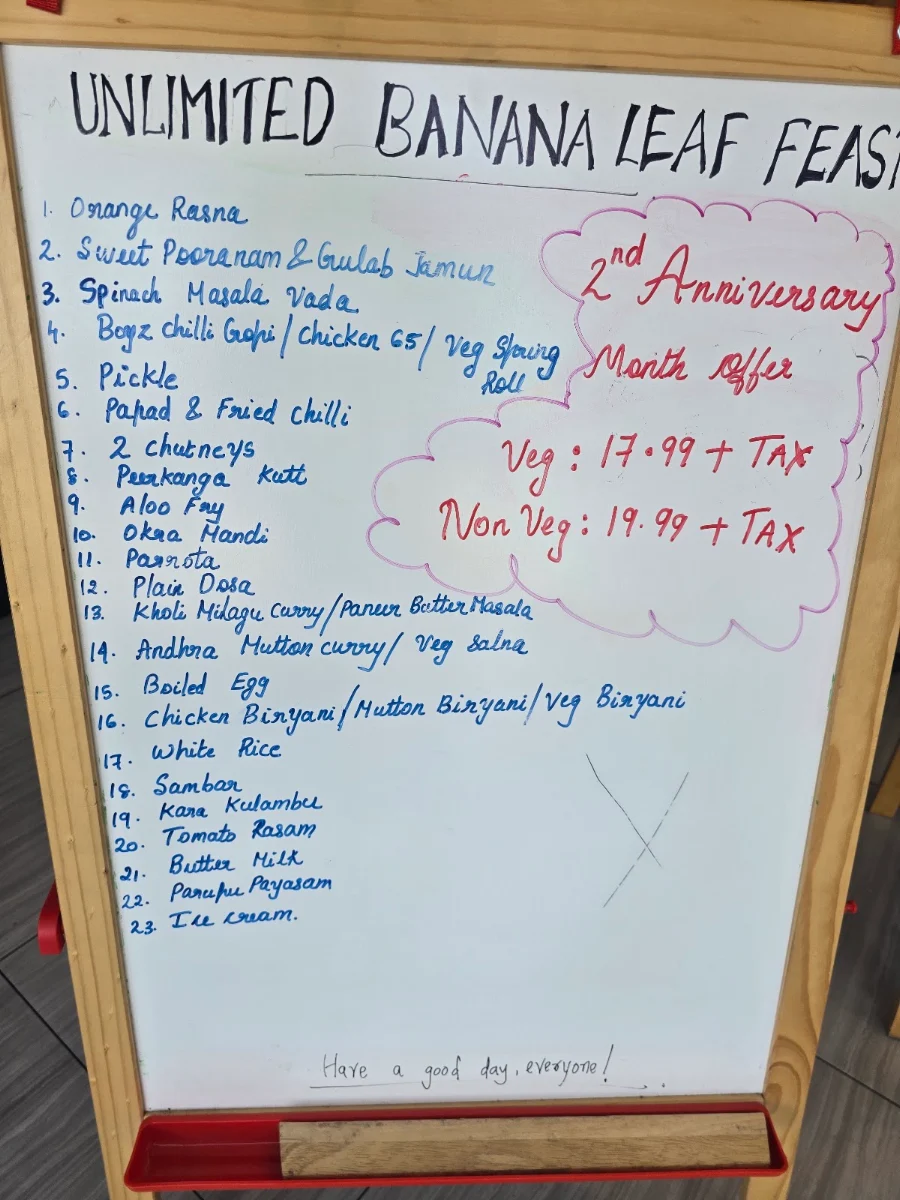 UNLIMITED BANANA LEAF FEAST
1. Orange Rasna
2. Sweet Pooranam & Gulab Jamun
3. Spinach Masala Vada
4. Bogz chilli Gopi / Chicken 65 / Veg Spring
Roll
5. Pickle
6. Papad & Fried chilli
7. 2 chutneys
8. Peerkanga Kutt
9. Aloo Fry
10. Okra Mandi
11. Parrota
12. Plain Dosa
13. Kholi Milagu Curry / Paneer Butter Masala
14. Andhra Mutton curry / Veg Salna
15. Boiled Egg
16. Chicken Biryani / Mutton Biryani / Veg Biryani
17. White Rice
18. Sambar
19. Kara Kulambu
20. Tomato Rasam
21. Butter Milk
22. Parupu Payasam
23. Ice cream.
2nd Anniversary
Month offer
Veg : 17.99 + TAX
Non Veg : 19.99 + TAX
Have a good day, everyone!